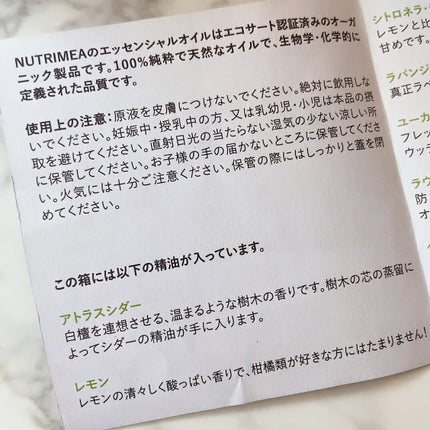 NUTRIMEAのエッセンシャルオイルはエコサート認証済みのオーガ
ニック製品です。100%純粋で天然なオイルで、生物学・化学的に
定義された品質です。
使用上の注意：原液を皮膚につけないでください。絶対に飲用しな
いでください。妊娠中・授乳中の方、又は乳幼児・小児は本品の摂
取を避けてください。直射日光の当たらない湿気の少ない涼しい所
に保管してください。お子様の手の届かないところに保管してくださ
い。火気には十分ご注意ください。保管の際にはしっかりと蓋を閉
めてください。
この箱には以下の精油が入っています。
アトラスシダー
白檀を連想させる、温まるような樹木の香りです。樹木の芯の蒸留に
よってシダーの精油が手に入ります。
レモン
レモンの清々しく酸っぱい香りで、柑橘類が好きな方にはたまりません!
シトロネラ・
レモンと比
甘めです。
ラバンジ
真正ラベ
ユーカ
フレッ
ウッデ
ラウ
防
オ